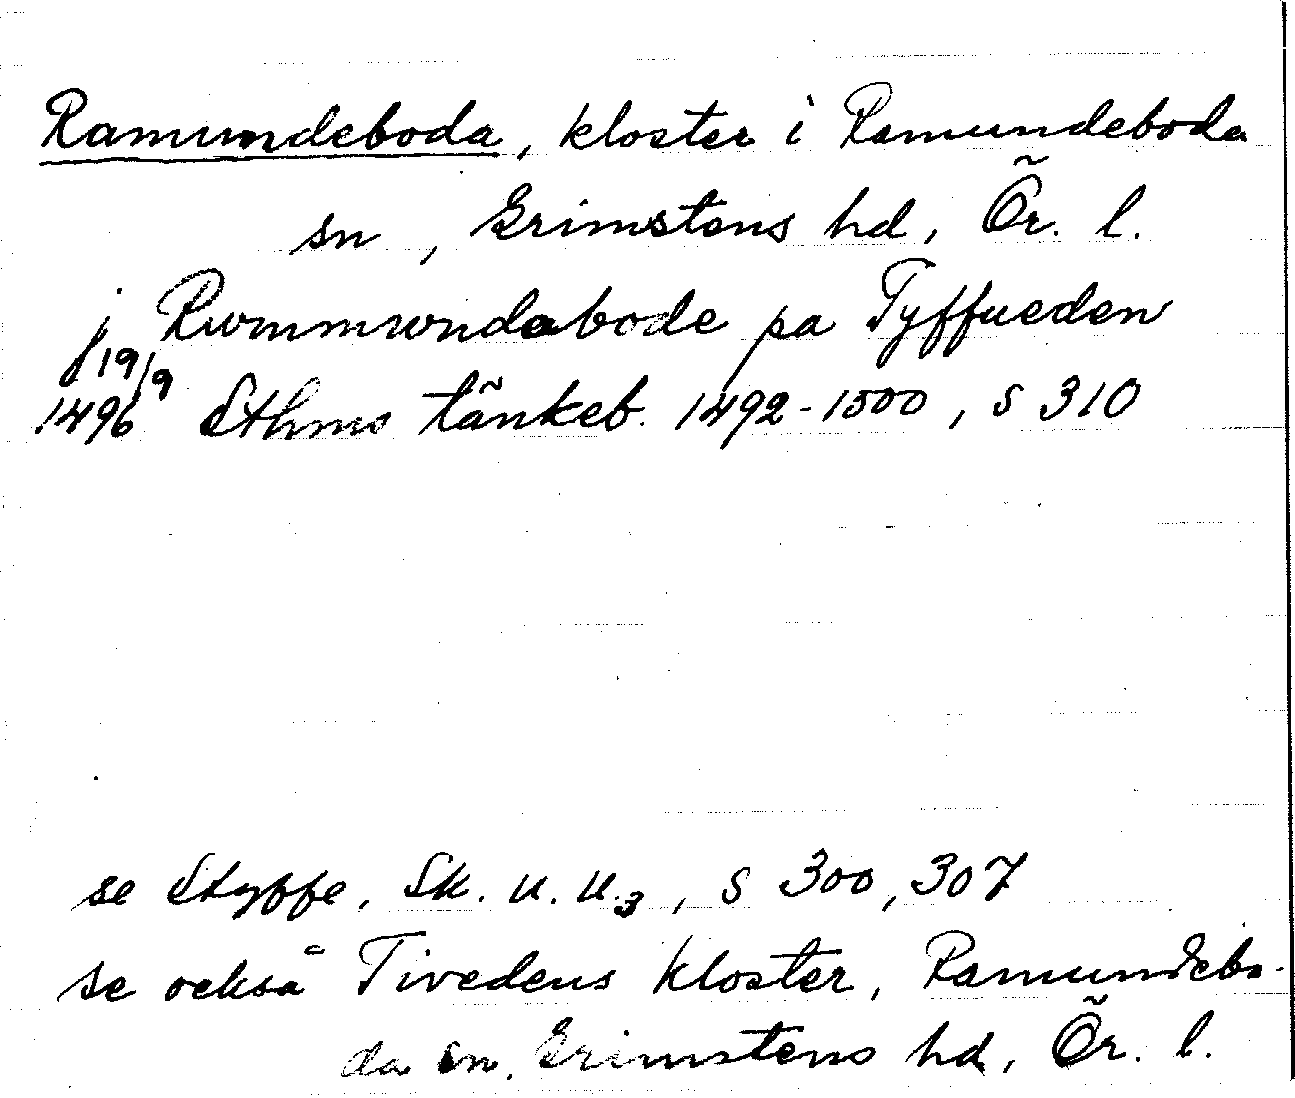 Ramundeboda, kloster i Ramundeboda
sn, Grimstens hd, Ör. l.
j Rwmmwndabode pa Tyffueden
19/9
1496 Sthms tänkeb. 1492-1500, s 310
se Styffe, Sk. u. u.3, s 300, 307
se också Tivedens kloster, Ramundebo-
da sn, Grimstens hd, Ör. l.